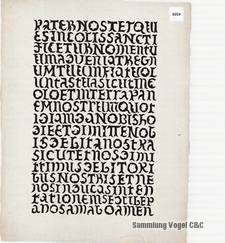 PATERNOSTERQUI
ESINCOELISSANCTI
FICETURNOMENTU
UMADVENIATREGN
UMTUUMFIATVOL
UNTASTUASICUTINC
OELOETINTERRAPAN
EMNOSTRUMQUOT
IDIANUMDANOBISHO
DIEETDIMITTENOB
ISDEBITANOSTRAS
ICUTETNOSDIMI
TTIMUSDEBITORI
BUSNOSTRISETNE
NOSINDUCASINTEN
TATIONEMSEDLIBER
ANOSAMALOAMEN
Sammlung Vogel C&C